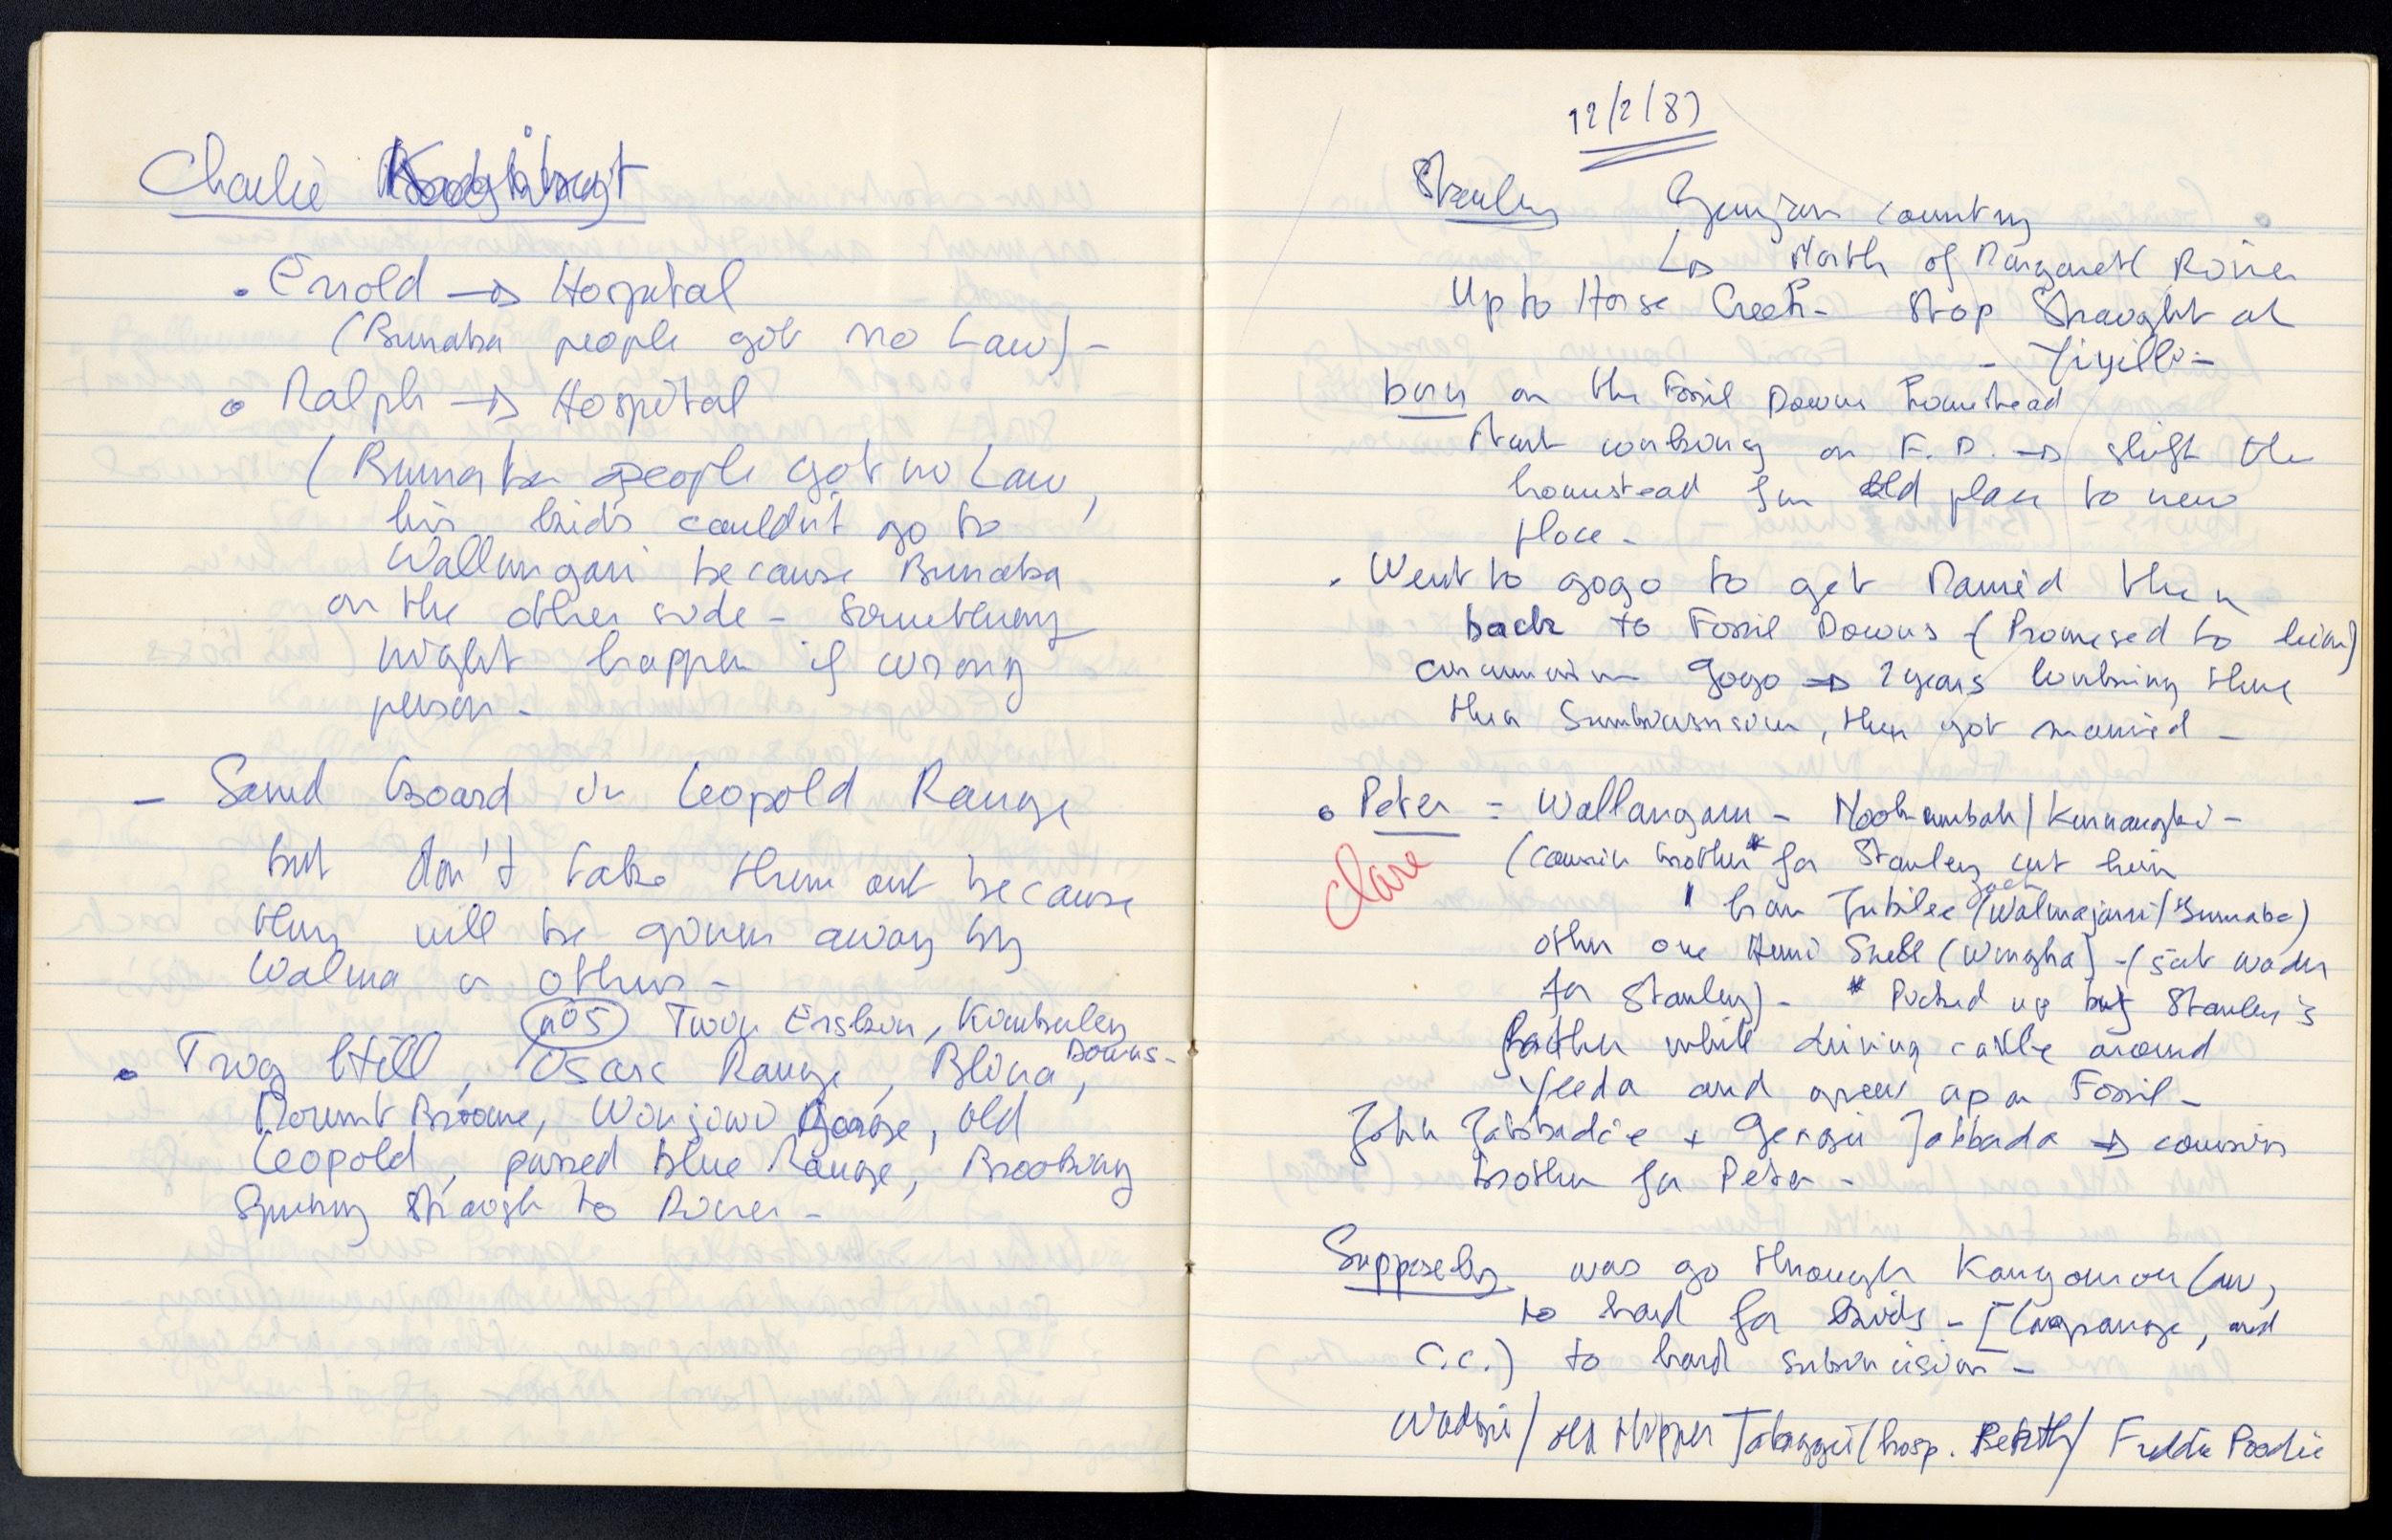 Charlie
. Errold → Hospital
(Bunaba people got no Law) -
. Ralph → Hospital
(Bunaba people got no Law,
his kids couldn't go to
Wallungari because Bunaba
on the other side - Something
might happen if wrong
person -
- Sand board in Leopold Range
but don't take them out because
they will be given away by
Walma or others -
Twin , Kimberley
Downs -
. Frog Hill, Oscar Range, Blina,
Mount Broome, Winjowi Gorge, old
Leopold, passed blue Range, Brooking
Spring straigh to River -
12/2/87
Stanley country
↳ North of Margaret River
Up to Horse Creek - Stop Straight at
- Yiyilli -
born on the Fossil Downs homestead
start working on F. D. → shift the
homestead from old place to new
place -
. Went to gogo to get Married then
back to Fossil Downs - (Promised to him)
gogo → 2 years working there
then , then got married -
. Peter = Wallangarri - Nookumbah/Kurnangki -
Clare
(cousin brother* for Stanley cut him
" from Jubilee (Walmajarri/Bunaba)
other one Snell ( ) -
for Stanley) - * Picked up by Stanley's
father while driving cattle around
Yeeda and grew up on Fossil -
John + Georgie → cousin
brother for Peter -
Supposely was go through Kangourou Law,
to hard for kids - [Lagrange, and
C.C.) to hard subincision -
/ old Nipper (hosp. / Freddie